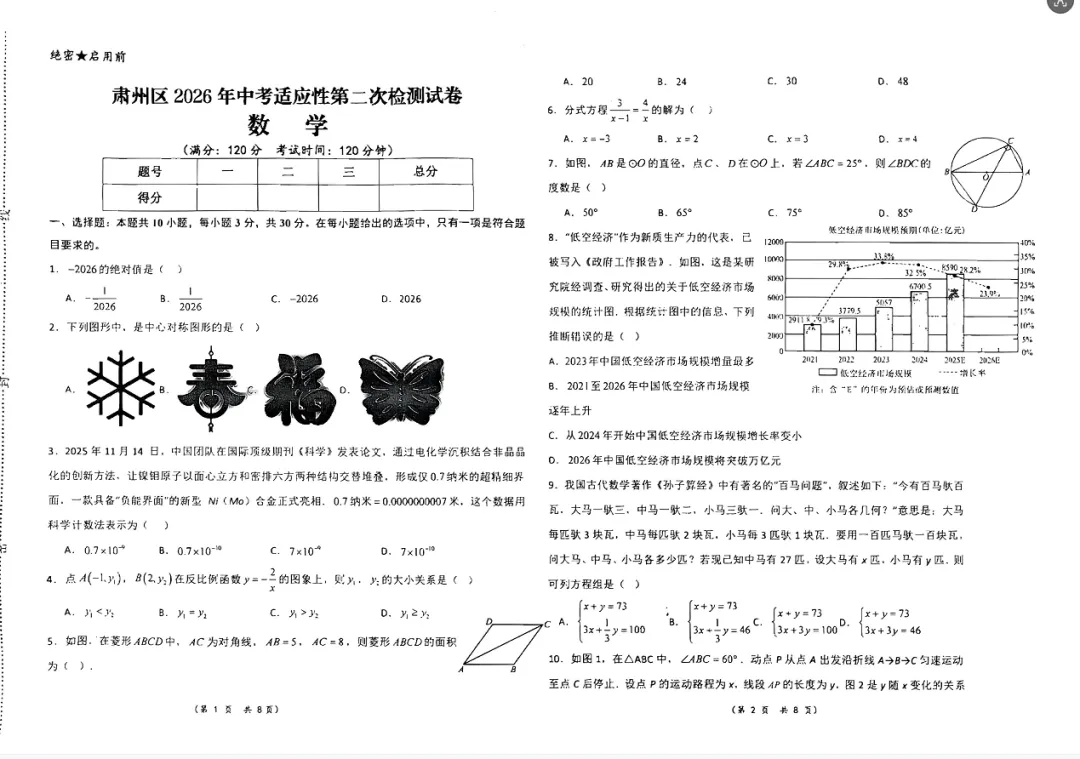 绝密★启用前
肃州区 2026 年中考适应性第二次检测试卷
数 学
(满分：120 分 考试时间：120 分钟)
题号 一 二 三 总分
得分
一、选择题：本题共 10 小题，每小题 3 分，共 30 分。在每小题给出的选项中，只有一项是符合题
目要求的。
1. -2026 的绝对值是（ ）
A. -1/2026 B. 1/2026 C. -2026 D. 2026
2. 下列图形中，是中心对称图形的是（ ）
A. B. C. D.
春 福
3. 2025 年 11 月 14 日，中国团队在国际顶级期刊《科学》发表论文，通过电化学沉积结合非晶晶
化的创新方法，让镍钼原子以面心立方和密排六方两种结构交替堆叠，形成仅 0.7 纳米的超精细界
面，一款具备“负能界面”的新型 Ni（Mo）合金正式亮相．0.7 纳米 = 0.0000000007 米，这个数据用
科学计数法表示为（ ）
A. 0.7×10⁻⁹ B. 0.7×10⁻¹⁰ C. 7×10⁻⁹ D. 7×10⁻¹⁰
4. 点 A(-1,y₁)，B(2,y₂) 在反比例函数 y=-2/x 的图象上，则 y₁，y₂ 的大小关系是（ ）
A. y₁<y₂ B. y₁=y₂ C. y₁>y₂ D. y₁≥y₂
5. 如图，在菱形 ABCD 中，AC 为对角线，AB=5，AC=8，则菱形 ABCD 的面积
为（ ）.
D C
A B
（第 1 页 共 8 页）
A. 20 B. 24 C. 30 D. 48
6. 分式方程 3/(x-1)=4/x 的解为（ ）
A. x=-3 B. x=2 C. x=3 D. x=4
7. 如图，AB 是⊙O 的直径，点 C、D 在⊙O 上，若∠ABC=25°，则∠BDC 的
度数是（ ）
C
B O A
D
A. 50° B. 65° C. 75° D. 85°
8. “低空经济”作为新质生产力的代表，已
被写入《政府工作报告》．如图，这是某研
究院经调查、研究得出的关于低空经济市场
规模的统计图．根据统计图中的信息，下列
推断错误的是（ ）
A. 2023 年中国低空经济市场规模增量最多
B. 2021 至 2026 年中国低空经济市场规模
逐年上升
C. 从 2024 年开始中国低空经济市场规模增长率变小
D. 2026 年中国低空经济市场规模将突破万亿元
低空经济市场规模预期(单位:亿元)
12000 40%
10000 35%
8000 30%
6000 25%
4000 20%
2000 15%
0 10%
5%
0%
29.8% 33.8% 32.5% 28.2% 23.9%
3779.5 5057 6700.5 8590
2021 2022 2023 2024 2025E 2026E
低空经济市场规模 增长率
注：含“E”的年份为预估或预测数值
9. 我国古代数学著作《孙子算经》中有著名的“百马问题”，叙述如下：“今有百马驮百
瓦，大马一驮三，中马一驮二，小马三驮一．问大、中、小马各几何？”意思是：大马
每匹驮 3 块瓦，中马每匹驮 2 块瓦，小马每 3 匹驮 1 块瓦．要用一百匹马驮一百块瓦，
问大马、中马、小马各多少匹？若现已知中马有 27 匹，设大马有 x 匹，小马有 y 匹．则
可列方程组是（ ）
A. {x+y=73 3x+1/3y=100 B. {x+y=73 3x+1/3y=46 C. {x+y=73 3x+3y=100 D. {x+y=73 3x+3y=46
10. 如图 1，在△ABC 中，∠ABC=60°．动点 P 从点 A 出发沿折线 A→B→C 匀速运动
至点 C 后停止．设点 P 的运动路程为 x，线段 AP 的长度为 y，图 2 是 y 随 x 变化的关系
（第 2 页 共 8 页）